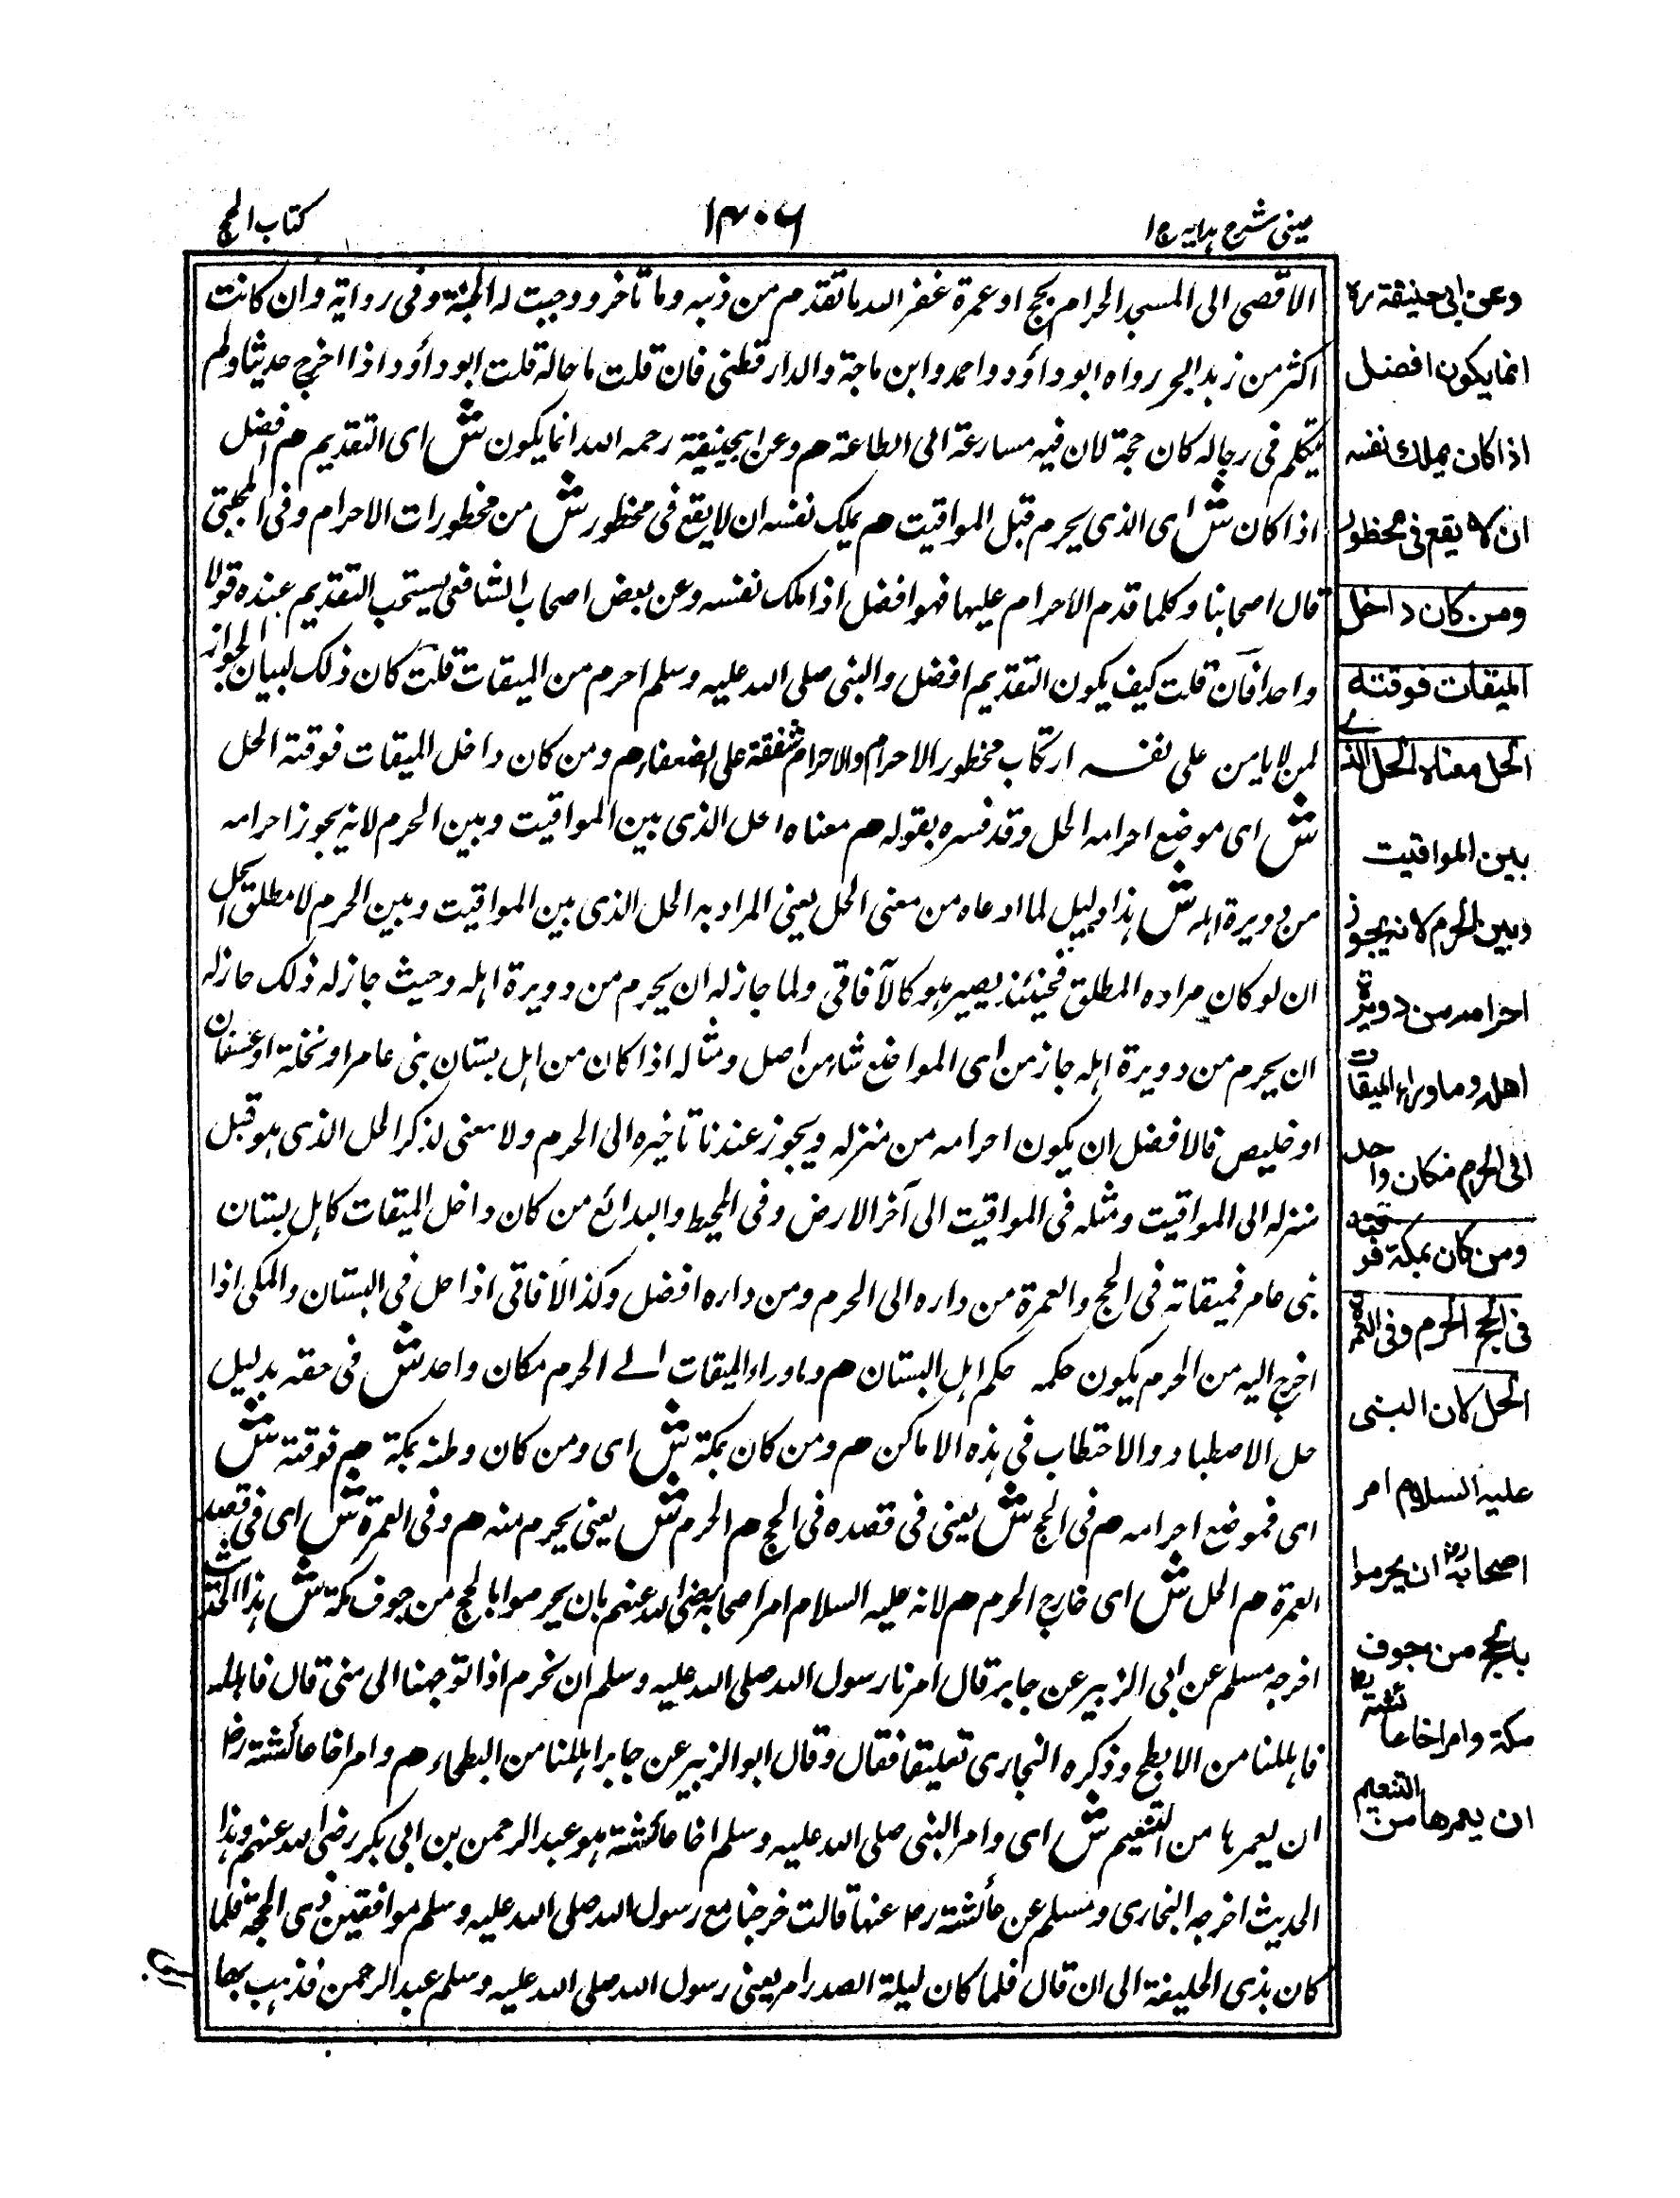 عینی شرح ہدایہ ج ا
۱۴۰۶
کتاب الحج
الاقصی الی المسجد الحرام بحج او عمرة غفر الله ما تقدم من ذنبه وما تاخر ووجبت له الجنة وفی رواية وان کانت
اکثر من زبد البحر رواه ابو داؤد واحمد وابن ماجة والدارقطنی فان قلت ما حاله قلت ابو داؤد اذا اخرج حدیثا ولم
یتکلم فی رجاله کان حجة لان فیه مسارعة الی الطاعة هم وعن ابیحنیفة رحمه الله انما یکون ش ای التقدیم هم افضل
اذا کان ش ای الذی یحرم قبل المواقیت هم یملک نفسه ان لا یقع فی محظور ش من محظورات الاحرام وفی المجتبی
قال اصحابنا وکلما قدم الاحرام علیها فهو افضل اذا ملک نفسه وعن بعض اصحاب الشافعی یستحب التقدیم عنده قولا
واحدا فان قلت کیف یکون التقدیم افضل والنبی صلی الله علیه وسلم احرم من المیقات قلت کان ذلک لبیان الجواز
لمن لا یامن علی نفسه ارتکاب محظور الاحرام والاحرام شفقة علی الضعفاء هم ومن کان داخل المیقات فوقته الحل
ش ای موضع احرامه الحل وقد فسره بقوله هم معناه الحل الذی بین المواقیت وبین الحرم لانه یجوز احرامه
من دویرة اہله ش ہذا دلیل لما ادعاه من معنی الحل یعنی المراد به الحل الذی بین المواقیت وبین الحرم لا مطلق الحل
ان لو کان مراده المطلق فحینئذ یصیر ہو کالآفاقی ولما جاز له ان یحرم من دویرة اہله وحیث جاز له ذلک جاز له
ان یحرم من دویرة اہله جاز من ای المواضع شاء من اصل ومثاله اذا کان من اہل بستان بنی عامر او نخلة او عسفان
او خلیص فالافضل ان یکون احرامه من منزله ویجوز عندنا تاخیره الی الحرم ولا معنی لذکر الحل الذی ہو قبل
منزله الی المواقیت ومثله فی المواقیت الی آخر الارض وفی المحیط والبدائع من کان داخل المیقات کاہل بستان
بنی عامر فمیقاته فی الحج والعمرة من داره الی الحرم ومن داره افضل وکذا الآفاقی اذا حل فی البستان والمکی اذا
اخرج الیه من الحرم یکون حکمه حکم اہل البستان هم وماوراء المیقات الے الحرم مکان واحد ش فی حقه بدلیل
حل الاصطیاد والاحتطاب فی ہذه الاماکن هم ومن کان بمکة ش ای ومن کان وطنه بمکة هم فوقته ش
ای فموضع احرامه هم فی الحج ش یعنی فی قصده فی الحج هم الحرم ش یعنی یحرم منه هم وفی العمرة ش ای فی قصد
العمرة هم الحل ش ای خارج الحرم هم لانه علیه السلام امر اصحابه رضی الله عنهم بان یحرموا بالحج من جوف مکة ش ہذا الحدیث
اخرجه مسلم عن ابی الزبیر عن جابر قال امرنا رسول الله صلی الله علیه وسلم ان نحرم اذا توجهنا الی منی قال فاہلله
فاہللنا من الابطح وذکره البخاری تعلیقا فقال وقال ابو الزبیر عن جابر اہللنا من البطحاء هم وامر اخا عائشة رض
ان یعمرہا من التنعیم ش ای وامر النبی صلی الله علیه وسلم اخا عائشة ہو عبد الرحمن بن ابی بکر رضی الله عنهم وہذا
الحدیث اخرجه البخاری ومسلم عن عائشة رض عنها قالت خرجنا مع رسول الله صلی الله علیه وسلم موافقین ذی الحجة فلما
کان بذی الحلیفة الی ان قال فلما کان لیلة الصدر امر یعنی رسول الله صلی الله علیه وسلم عبد الرحمن فذہب بها
وعن ابی حنیفة رہ
انما یکون افضل
اذا کان یملك نفسه
ان لا یقع فی محظور
ومن کان داخل
المیقات فوقته
الحل معناه الحل الذے
بین المواقیت
وبین الحرم لانه یجوز
احرامه من دویرة
اهله وما وراء المیقات
الی الحرم مکان واحد
ومن کان بمکة فوقته
فی الحج الحرم وفی العمرة
الحل لان النبی
علیه السلام امر
اصحابه رض ان یحرموا
بالحج من جوف
مکة وامر اخا عائشة رض
ان یعمرها من التنعیم